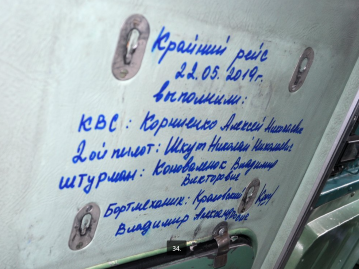 Крайний рейс
22.05.2019г.
выполнили:
КВС: Корниенко Алексей Николаевич
2ой пилот: Шкут Николай Николаевич
штурман: Коноваленок Владимир
Викторович
Бортмеханик:
Владимир Александрович
34.